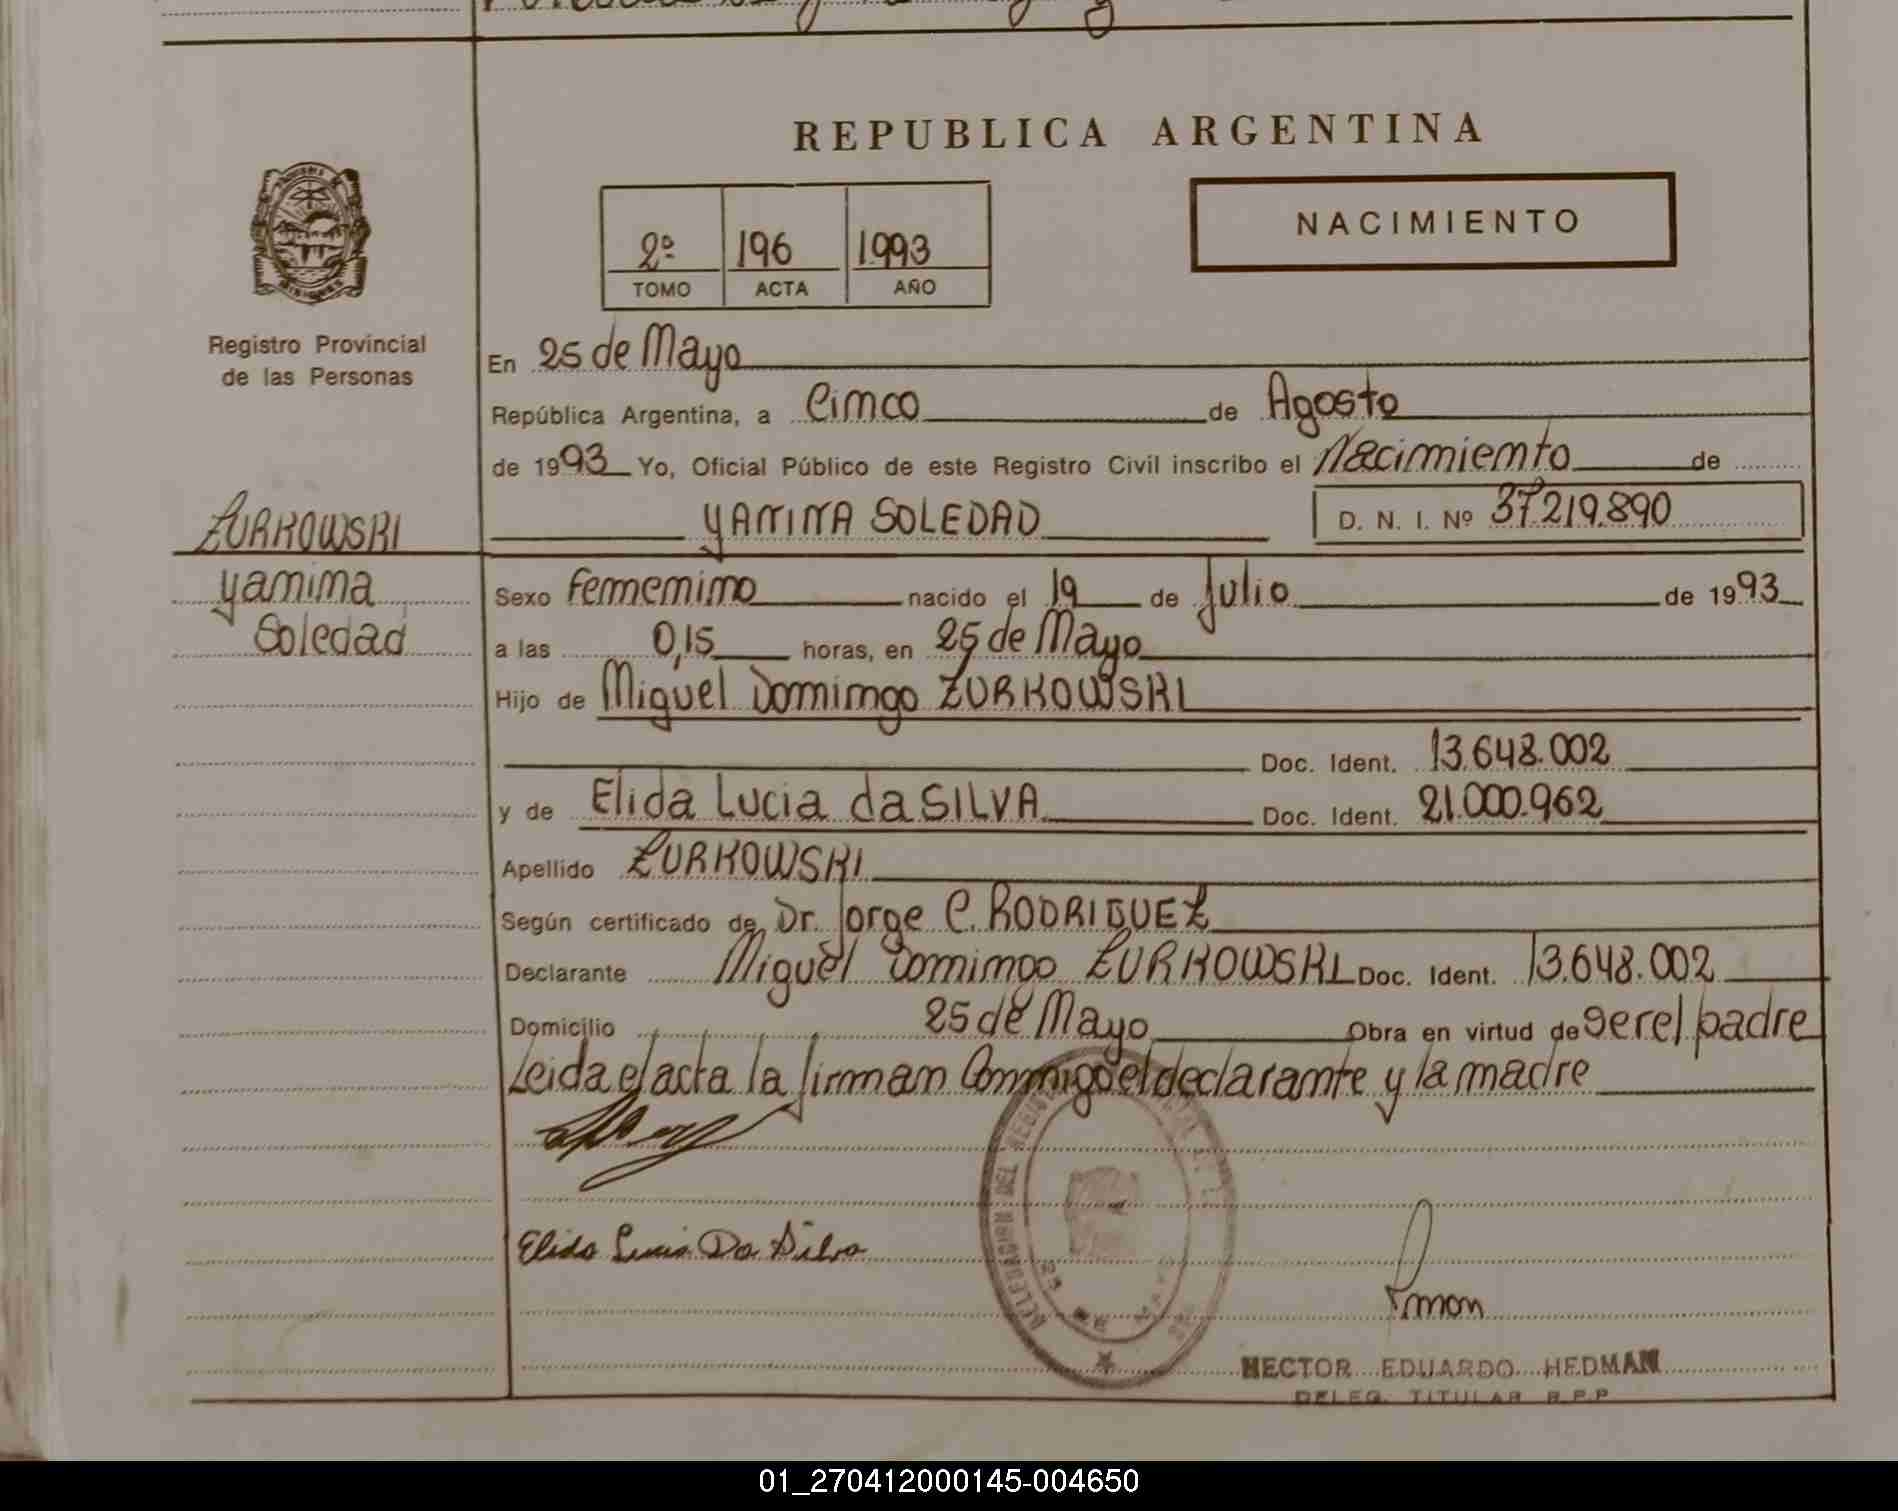 REPUBLICA ARGENTINA
NACIMIENTO
2º 196 1993
TOMO ACTA AÑO
Registro Provincial
de las Personas
En 25 de Mayo
República Argentina, a Cinco de Agosto
de 1993 Yo, Oficial Público de este Registro Civil inscribo el Nacimiento de
YANINA SOLEDAD D. N. I. Nº 37.219.890
ZURKOWSKI
Yanina
Soledad
Sexo Femenino nacido el 19 de Julio de 1993
a las 0,15 horas, en 25 de Mayo
Hijo de Miguel Domingo ZURKOWSKI
Doc. Ident. 13.648.002
y de Elida Lucia da SILVA Doc. Ident. 21.000.962
Apellido ZURKOWSKI
Según certificado de Dr. Jorge C. RODRIGUEZ
Declarante Miguel Domingo ZURKOWSKI Doc. Ident. 13.648.002
Domicilio 25 de Mayo Obra en virtud de ser el padre
Leida el acta la firman Conmigo el declarante y la madre
Elida Lucia Da Silva
DELEGACION DEL
25 DE MAYO
HECTOR EDUARDO HEDMAN
DELEG. TITULAR R.P.P
01_270412000145-004650